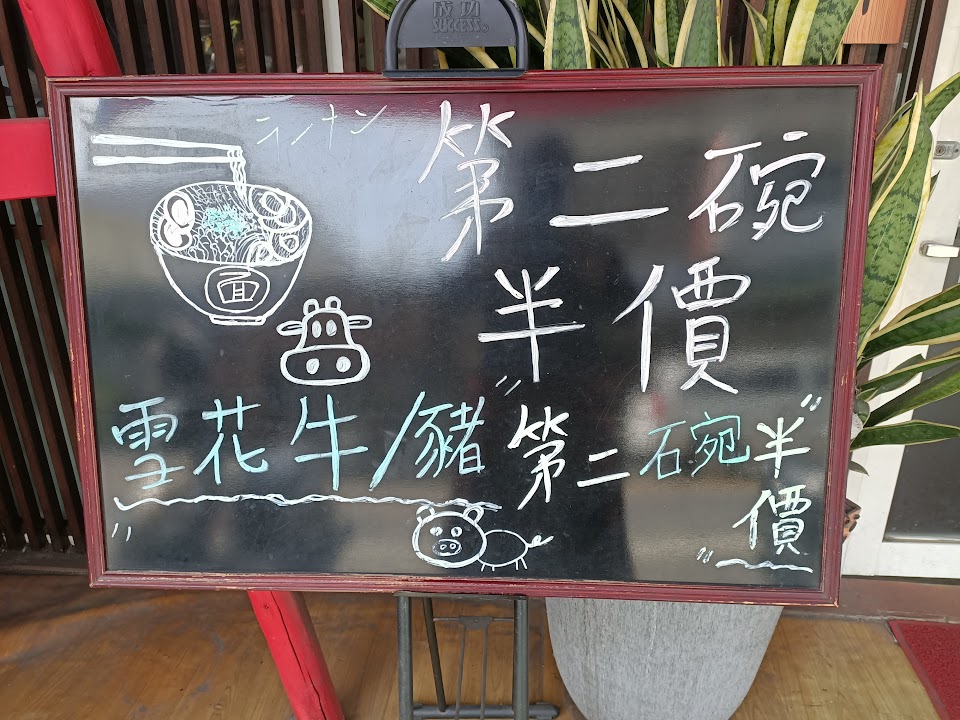 成功
SUCCESS
ラーメン
第二碗
半價
面
雪花牛/豬
"第二碗半"
價